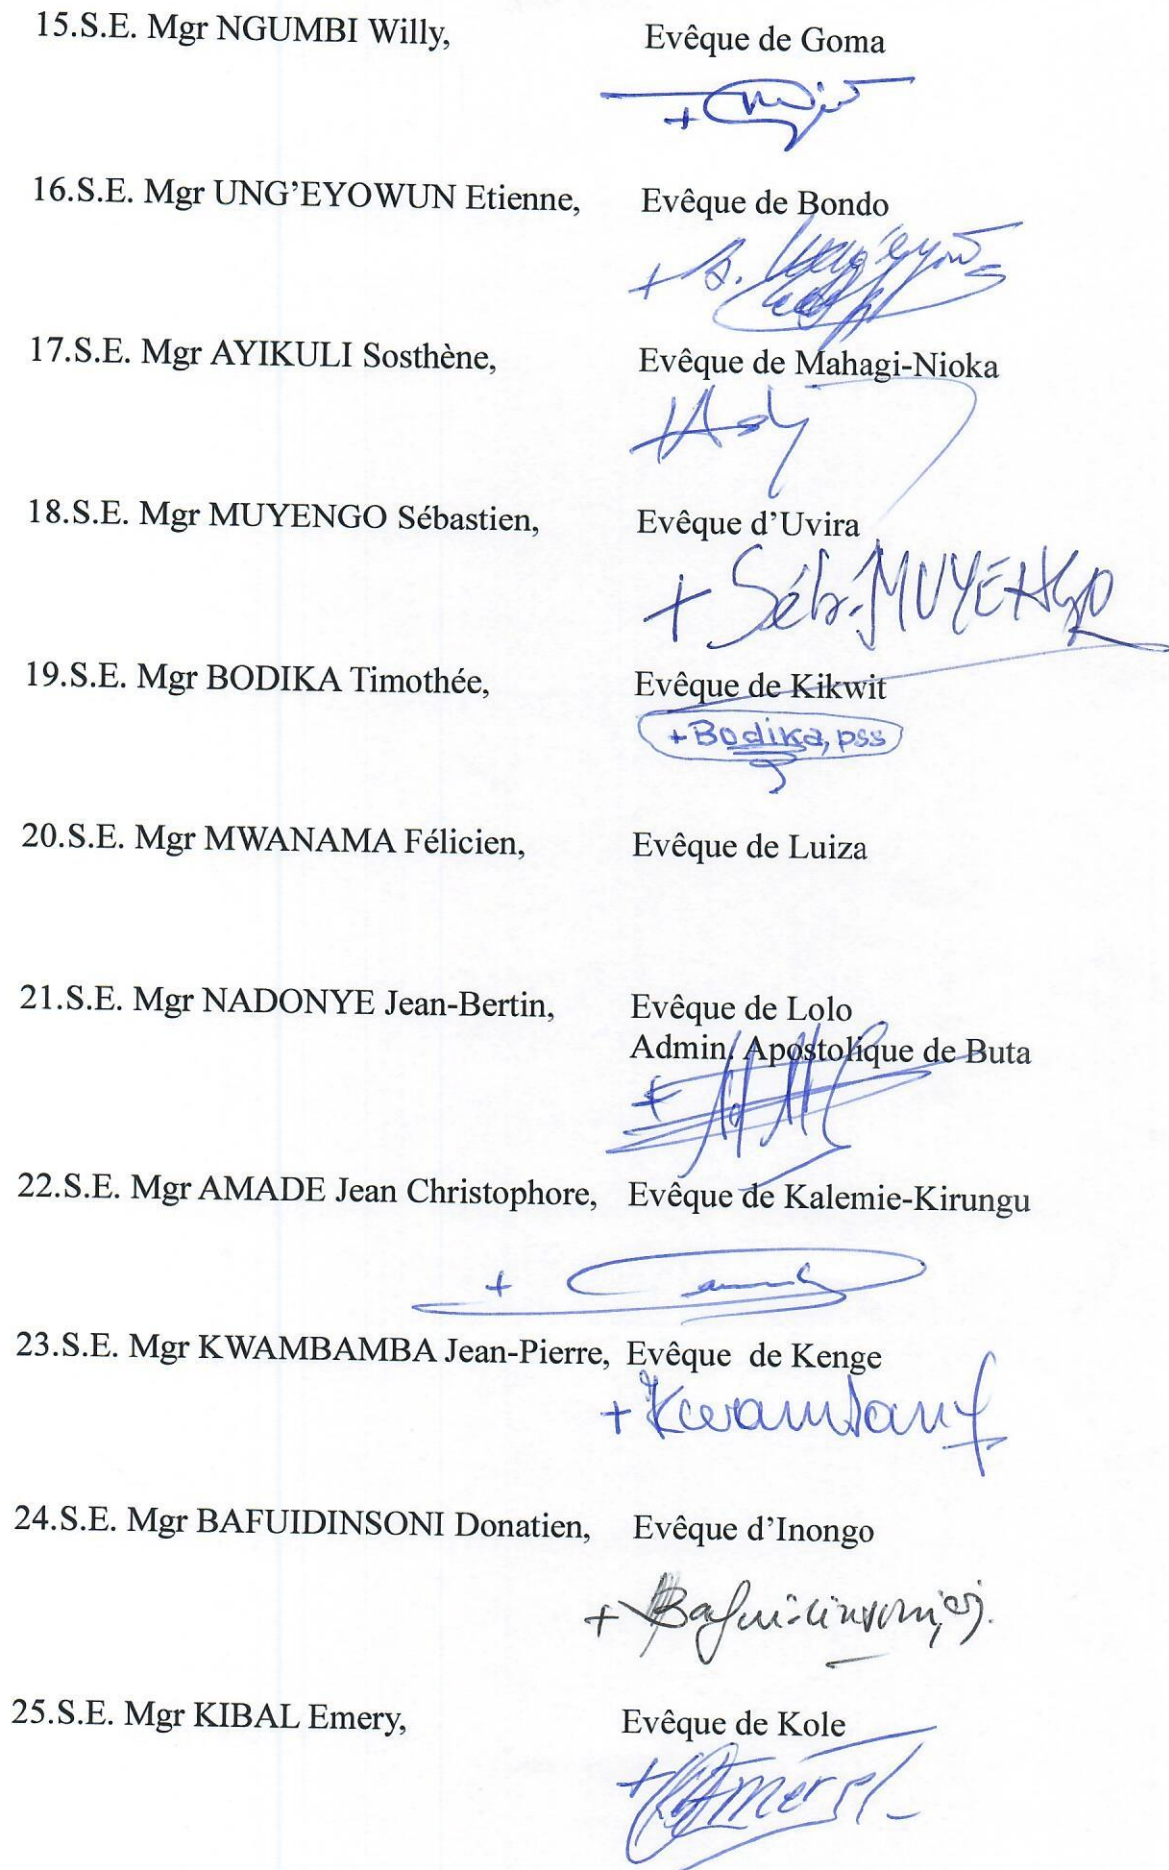 15.S.E. Mgr NGUMBI Willy, Evêque de Goma
16.S.E. Mgr UNG’EYOWUN Etienne, Evêque de Bondo
17.S.E. Mgr AYIKULI Sosthène, Evêque de Mahagi-Nioka
18.S.E. Mgr MUYENGO Sébastien, Evêque d’Uvira
+ Séb. MUYENGO
19.S.E. Mgr BODIKA Timothée, Evêque de Kikwit
+Bodika, pss
20.S.E. Mgr MWANAMA Félicien, Evêque de Luiza
21.S.E. Mgr NADONYE Jean-Bertin, Evêque de Lolo
Admin. Apostolique de Buta
22.S.E. Mgr AMADE Jean Christophore, Evêque de Kalemie-Kirungu
23.S.E. Mgr KWAMBAMBA Jean-Pierre, Evêque de Kenge
24.S.E. Mgr BAFUIDINSONI Donatien, Evêque d’Inongo
+ Bafuidinsoni, sj.
25.S.E. Mgr KIBAL Emery, Evêque de Kole